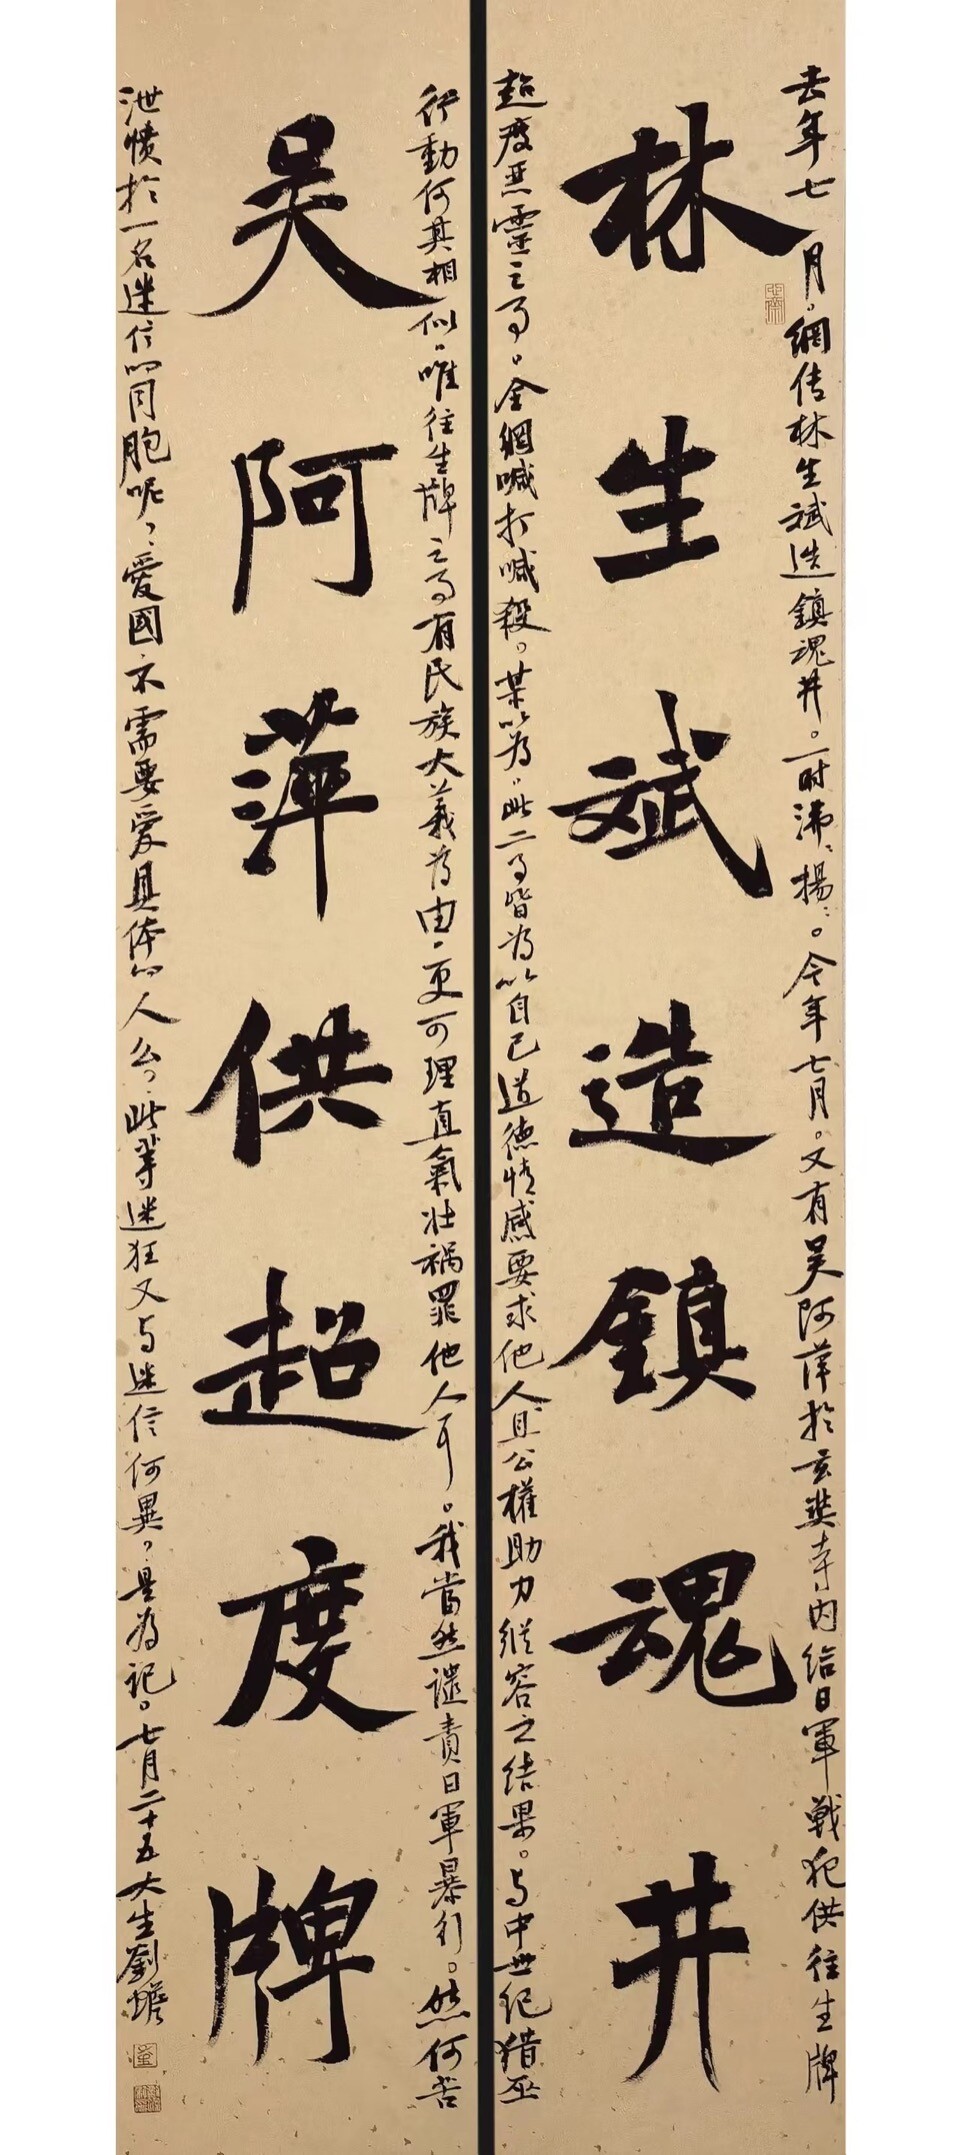 林生斌造鎮魂井
去年七月。網传林生斌造鎮魂井。一时沸沸揚揚。今年七月。又有吴阿萍於玄奘寺内给日軍戦犯供往生牌
超度恶靈之事。全網喊打喊殺。某以為。此二事皆為以自己道德情感要求他人且公權助力縱容之结果。与中世纪猎巫
吴阿萍供超度牌
行動何其相似。唯往生牌之事有民族大義为由。更可理直氣壮祸罪他人耳。我當然谴責日軍暴行。然何苦
泄愤於一名迷信的同胞呢，愛國不需要爱具体的人么。此等迷狂又与迷信何異，是為记。七月二十五大生劉蟾